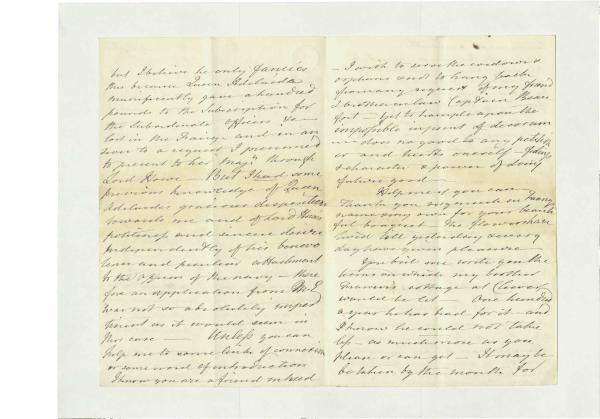 but I believe he only fancies
this because Queen Adelaide
munificently gave a hundred
pounds to the subscription for
the Subordinate officers &c
lost in the and in an
swer to a request I presumed
to present to her Maj'ty through
Lord Howe — But I had some
previous knowledge of Queen
Adelaides gracious disposition
towards me and of Lord Howes
politeness and sincere desire
independently of his benevo
lence and attachment
to the officers of the navy — there
fore an application from M.E.
was not so absolutely imperti
nent as it would seem in
this case — Unless you can
help me to some links of connexion
or some word of introduction
I know you are a friend indeed
— I wish to serve the widows &
orphans and to hang back
from any request of my friend
& brother in law Captain Beau
fort — yet to trample upon the
impassible of decorum
does no good to any petition
er and hurts oneself —
& character & power of doing
future good —
Help me if you can —
Thank you my much in Fanny
name & my own for your beauti
ful bouquet. The flowers have
lived till yesterday & every
day have given pleasure —
You bid me write you the
terms on which my brother
cottage at Clewer
would be let — One hundred
a year he has had for it — and
I know he would not take
less — as much more as you
please or can get — It may be
be taken by the month for